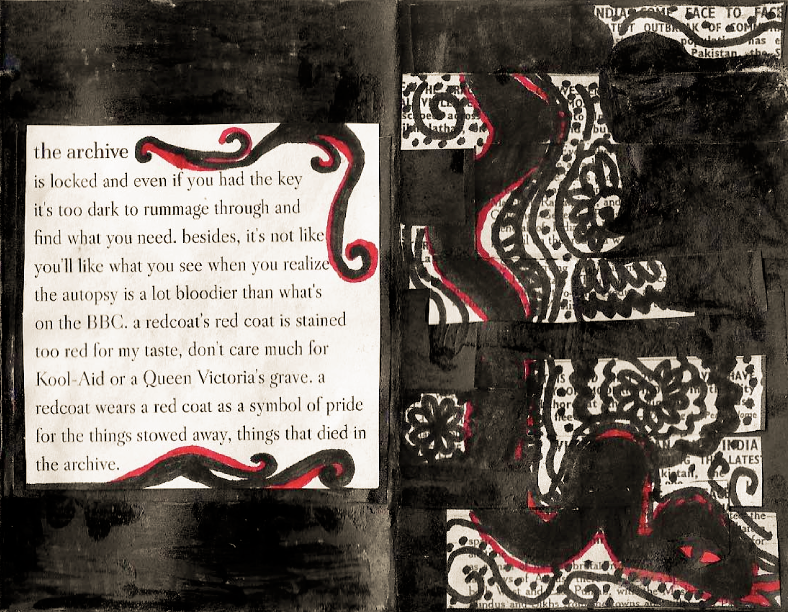 the archive
is locked and even if you had the key
it's too dark to rummage through and
find what you need. besides, it's not like
you'll like what you see when you realize
the autopsy is a lot bloodier than what's
on the BBC. a redcoat's red coat is stained
too red for my taste, don't care much for
Kool-Aid or a Queen Victoria's grave. a
redcoat wears a red coat as a symbol of pride
for the things stowed away, things that died in
the archive.
COME FACE TO FACE
OUTBREAK OF
population has
Pakistan, the
INDIA
LATEST